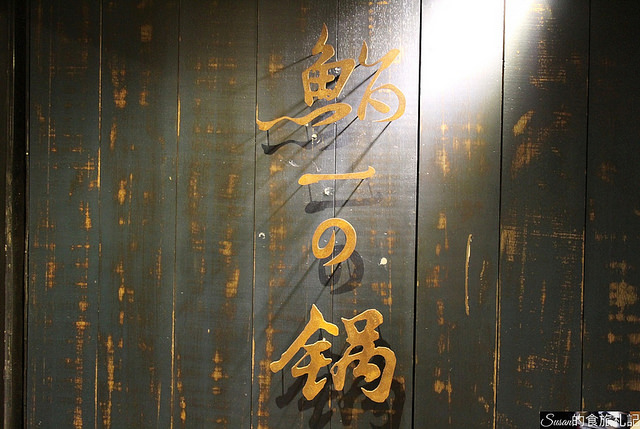 一の鍋
Susan的食旅札記